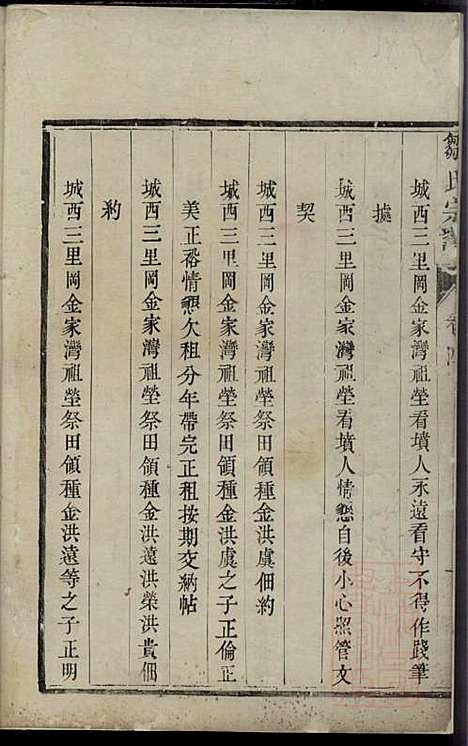 鄒氏宗譜 卷四
城西三里岡金家灣祖塋看墳人永遠看守不得作踐筆
據
城西三里岡金家灣祖塋看墳人情懇自後小心照管文
契
城西三里岡金家灣祖塋祭田領種金洪虞佃約
城西三里岡金家灣祖塋祭田領種金洪虞之子正倫正
美正裕情懇欠租分年帶完正租按期交納帖
城西三里岡金家灣祖塋祭田領種金洪遠洪榮洪貴佃
約
城西三里岡金家灣祖塋祭田領種金洪遠等之子正明